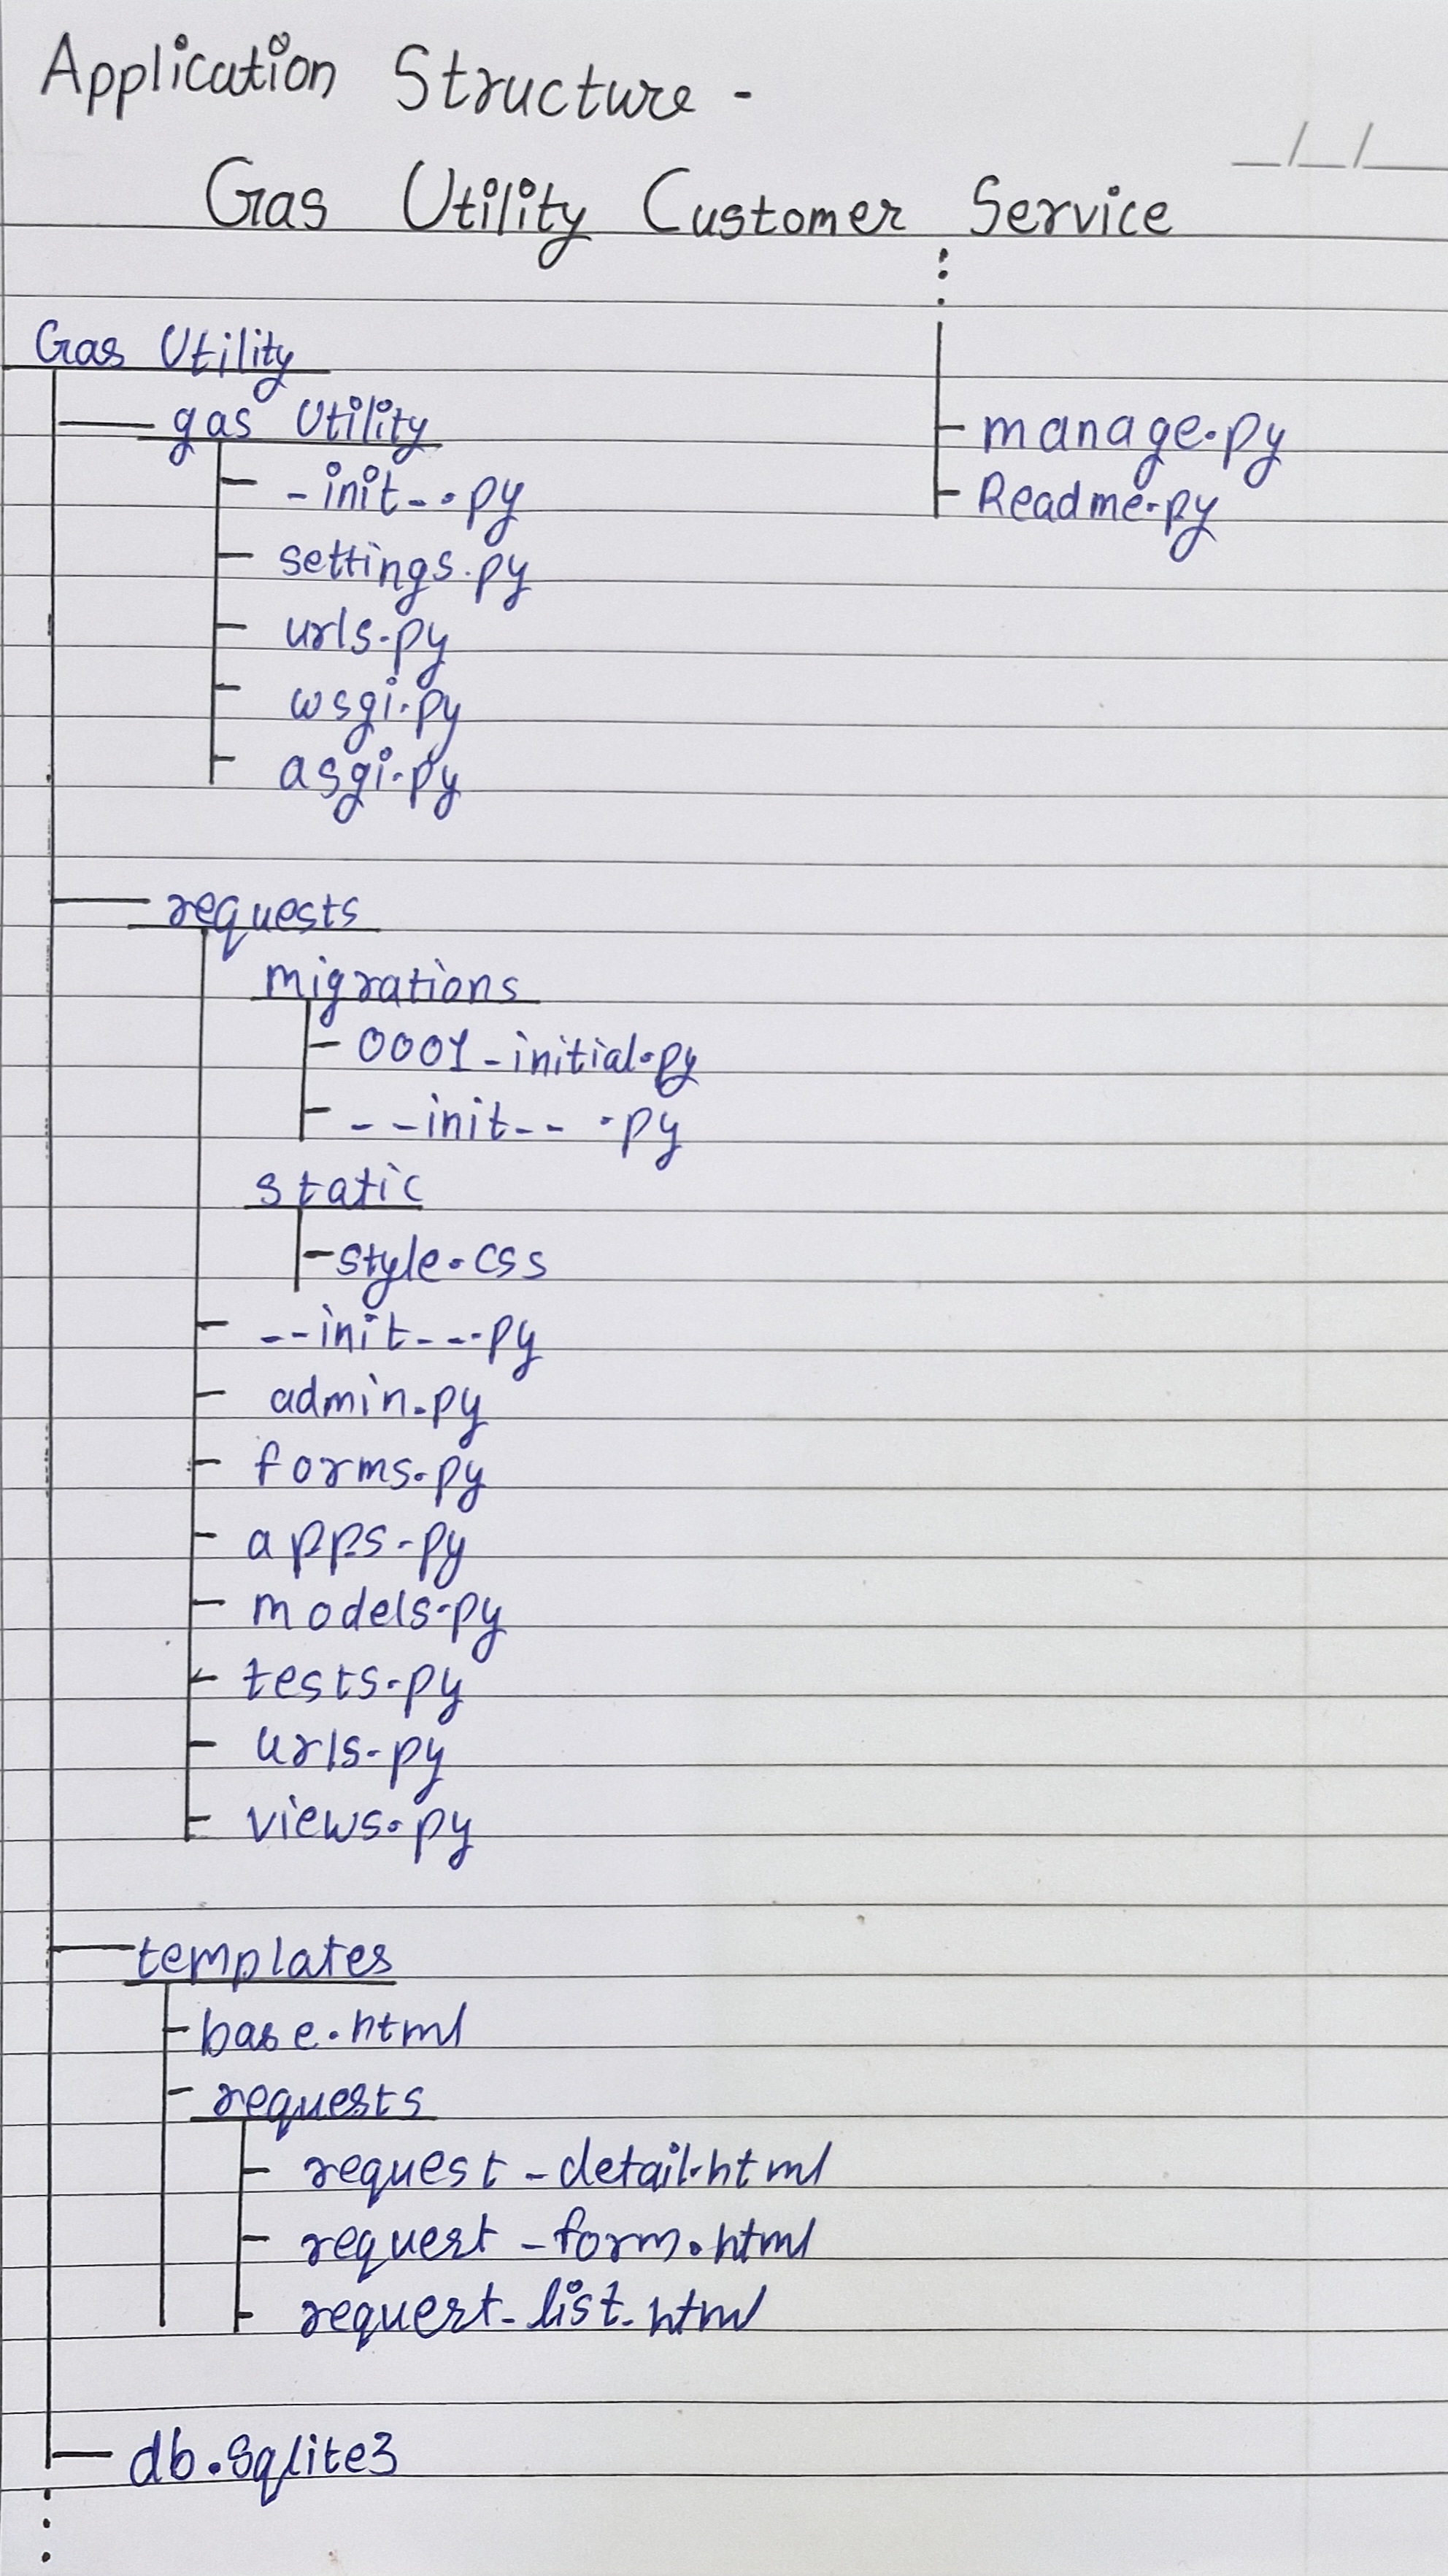 Application Structure -
Gas Utility Customer Service
Gas Utility
gas Utility
-init--.py
settings.py
urls.py
wsgi.py
asgi.py
requests
migrations
0001-initial.py
--init-- .py
static
style.css
--init--.py
admin.py
forms.py
apps.py
models.py
tests.py
urls.py
views.py
templates
base.html
requests
request-detail.html
request-form.html
request-list.html
db.sqlite3
manage.py
Readme.py